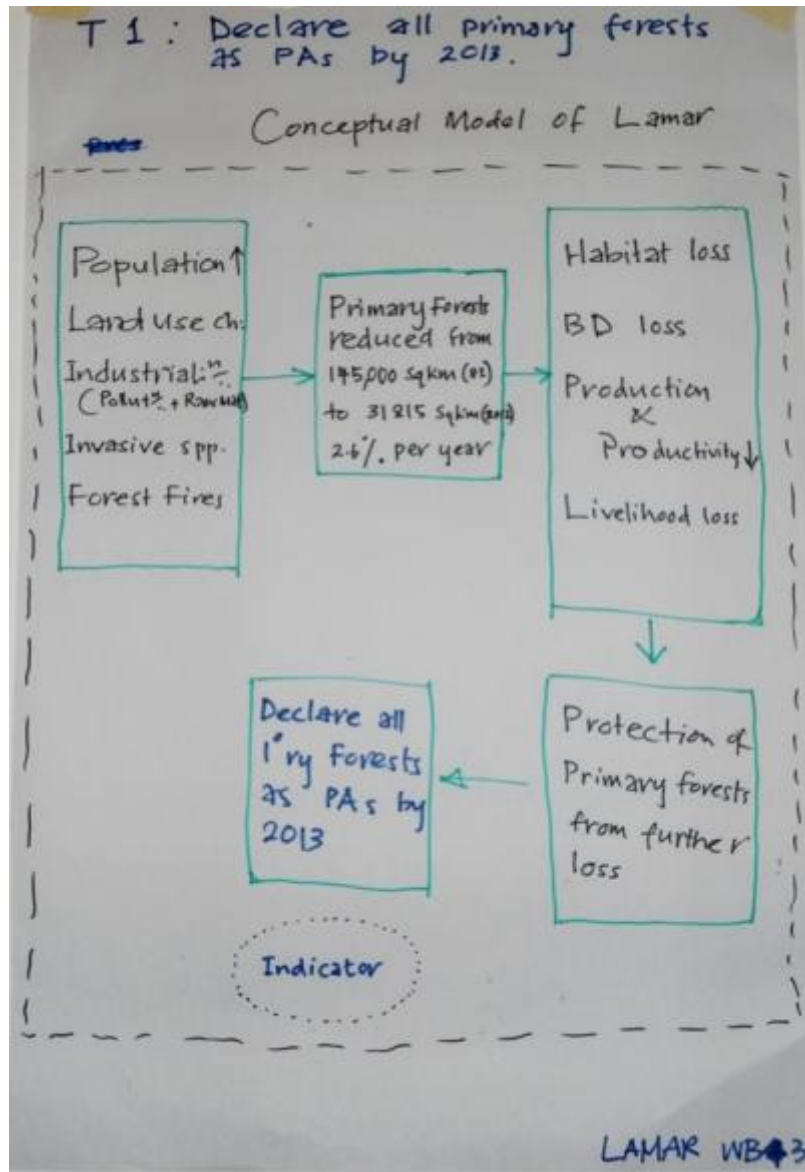 T 1 : Declare all primary forests
as PAs by 2013.
Conceptual Model of Lamar
Population↑
Land Use ch.
Invasive spp.
Forest Fires
Primary Forests
reduced from
145,000 sqkm
to 31815 sqkm
2.6%. per year
Habitat loss
BD loss
Production
&
Productivity↓
Livelihood loss
Protection of
Primary forests
from further
loss
Declare all
1°ry Forests
as PAs by
2013
Indicator
LAMAR WB 3